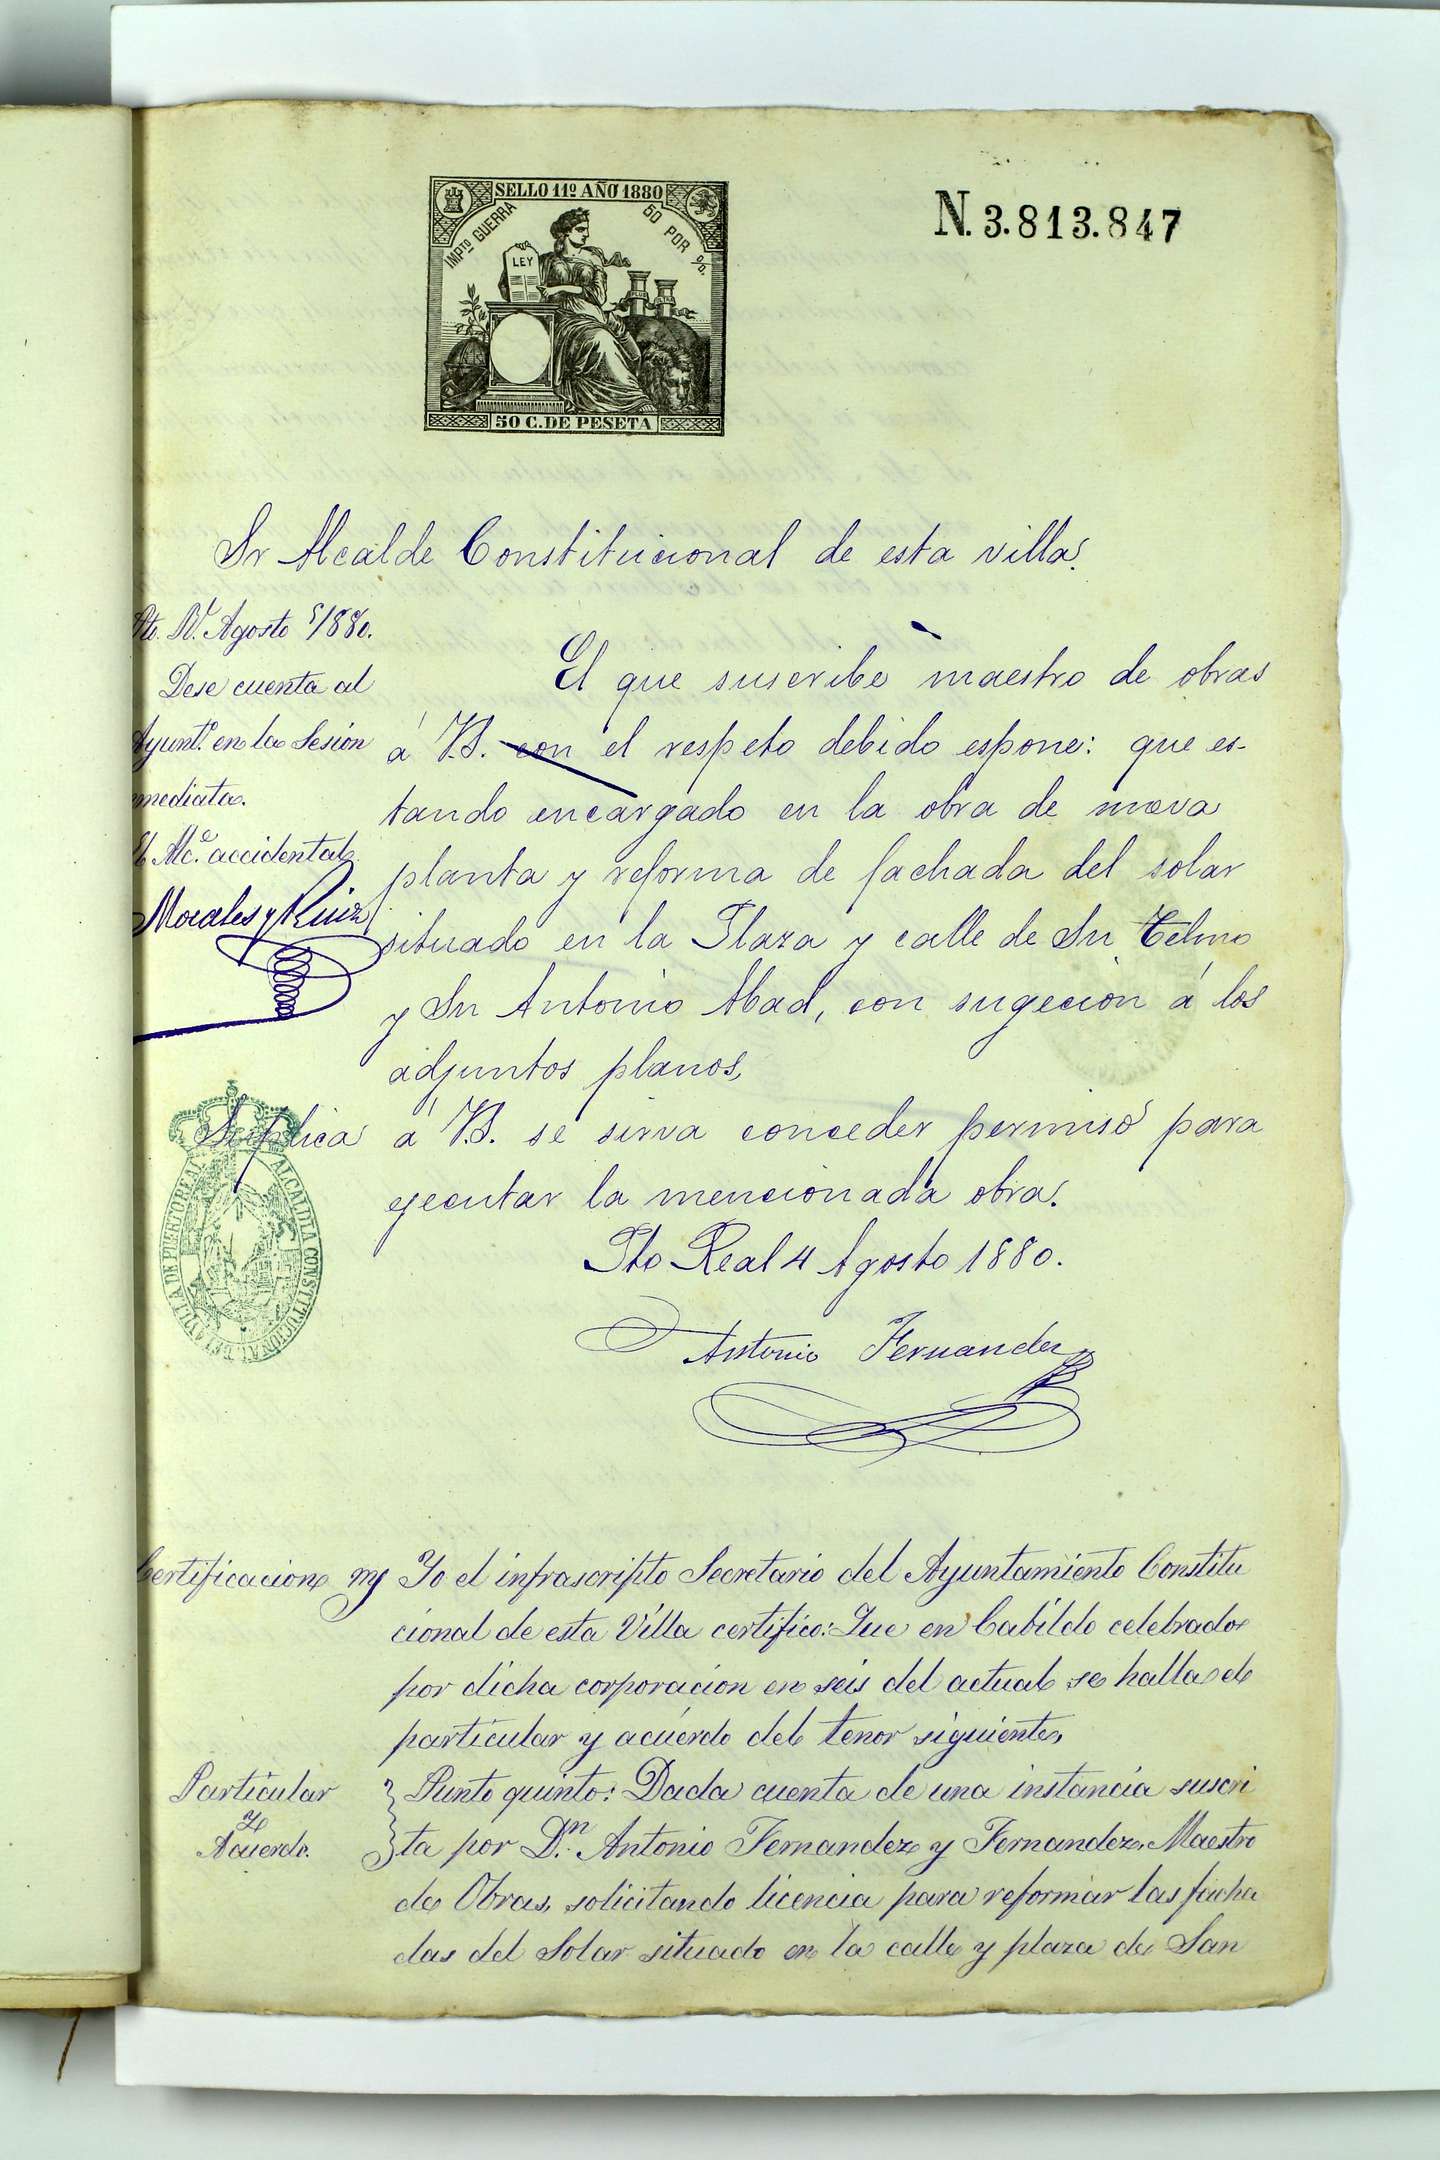 SELLO 11º AÑO 1880
IMPTO GUERRA
50 POR %
LEY
50 C. DE PESETA
N. 3.813.847
Sr Alcalde Constitucional de esta villa.
Pto. Rl. Agosto 5/880.
Dese cuenta al
Ayuntº. en la Sesion
inmediata.
El Alce. accidental
Morales y Ruiz
El que suscribe maestro de obras
á V.S. con el respeto debido espone: que es-
tando encargado en la obra de nueva
planta y reforma de fachada del solar
situado en la Plaza y calle de Sn Telmo
y Sn Antonio Abad, con sugecion á los
adjuntos planos,
Suplica á V.S. se sirva conceder permiso para
ejecutar la mencionada obra.
Pto Real 4 Agosto 1880.
Antonio Fernandez
ALCALDIA CONSTITUCIONAL DE LA VILLA DE PUERTO REAL
Certificacion Yo el infrascripto Secretario del Ayuntamiento Constitu
cional de esta Villa certifico: Que en Cabildo celebrado
por dicha corporacion en seis del actual se halla el
particular y acuerdo del tenor siguiente,
Particular
y
Acuerdo.
Punto quinto: Dada cuenta de una instancia suscri
ta por Dn. Antonio Fernandez y Fernandez, Maestro
de Obras, solicitando licencia para reformar las facha
das del Solar situado en la calle y plaza de San